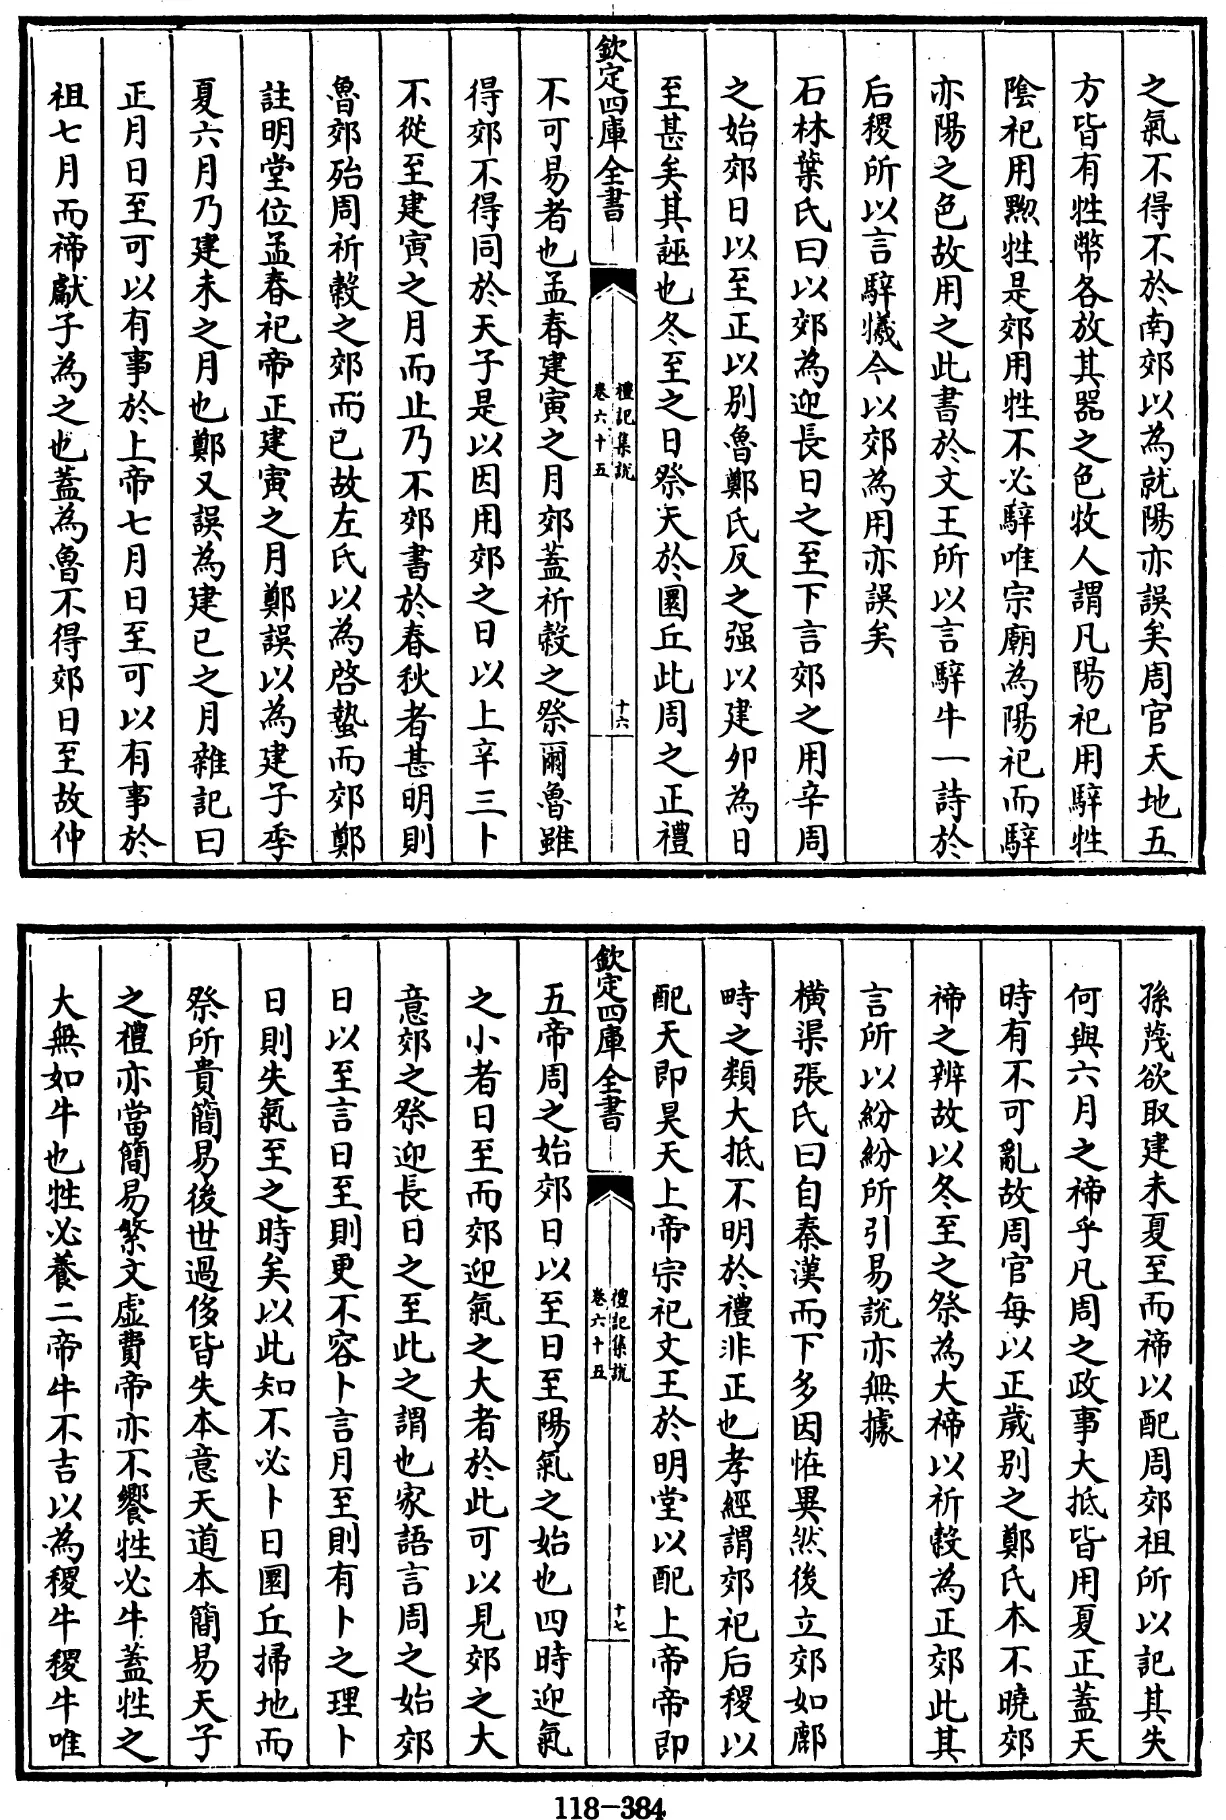 之氣不得不於南郊以為就陽亦誤矣周官天地五
方皆有牲幣各放其器之色牧人謂凡陽祀用騂牲
陰祀用黝牲是郊用牲不必騂唯宗廟為陽祀而騂
亦陽之色故用之此書於文王所以言騂牛一詩於
后稷所以言騂犧今以郊為用亦誤矣
石林葉氏曰以郊為迎長日之至下言郊之用辛周
之始郊日以至正以别魯鄭氏反之强以建卯為日
至甚矣其誣也冬至之日祭天於圜丘此周之正禮
欽定四庫全書
禮記集說
卷六十五
十六
不可易者也孟春建寅之月郊蓋祈穀之祭爾魯雖
得郊不得同於天子是以因用郊之日以上辛三卜
不從至建寅之月而止乃不郊書於春秋者甚明則
魯郊殆周祈穀之郊而已故左氏以為啓蟄而郊鄭
註明堂位孟春祀帝正建寅之月鄭誤以為建子季
夏六月乃建未之月也鄭又誤為建巳之月雜記曰
正月日至可以有事於上帝七月日至可以有事於
祖七月而禘獻子為之也蓋為魯不得郊日至故仲
孫蔑欲取建未夏至而禘以配周郊祖所以記其失
何與六月之禘乎凡周之政事大抵皆用夏正蓋天
時有不可亂故周官每以正歲别之鄭氏本不曉郊
禘之辨故以冬至之祭為大禘以祈穀為正郊此其
言所以紛紛所引易說亦無據
橫渠張氏曰自秦漢而下多因怪異然後立郊如鄜
畤之類大抵不明於禮非正也孝經謂郊祀后稷以
配天即昊天上帝宗祀文王於明堂以配上帝帝即
欽定四庫全書
禮記集說
卷六十五
十七
五帝周之始郊日以至日至陽氣之始也四時迎氣
之小者日至而郊迎氣之大者於此可以見郊之大
意郊之祭迎長日之至此之謂也家語言周之始郊
日以至言日至則更不容卜言月至則有卜之理卜
日則失氣至之時矣以此知不必卜日圜丘掃地而
祭所貴簡易後世過侈皆失本意天道本簡易天子
之禮亦當簡易繁文虛費帝亦不饗牲必牛蓋牲之
大無如牛也牲必養二帝牛不吉以為稷牛稷牛唯
118-384